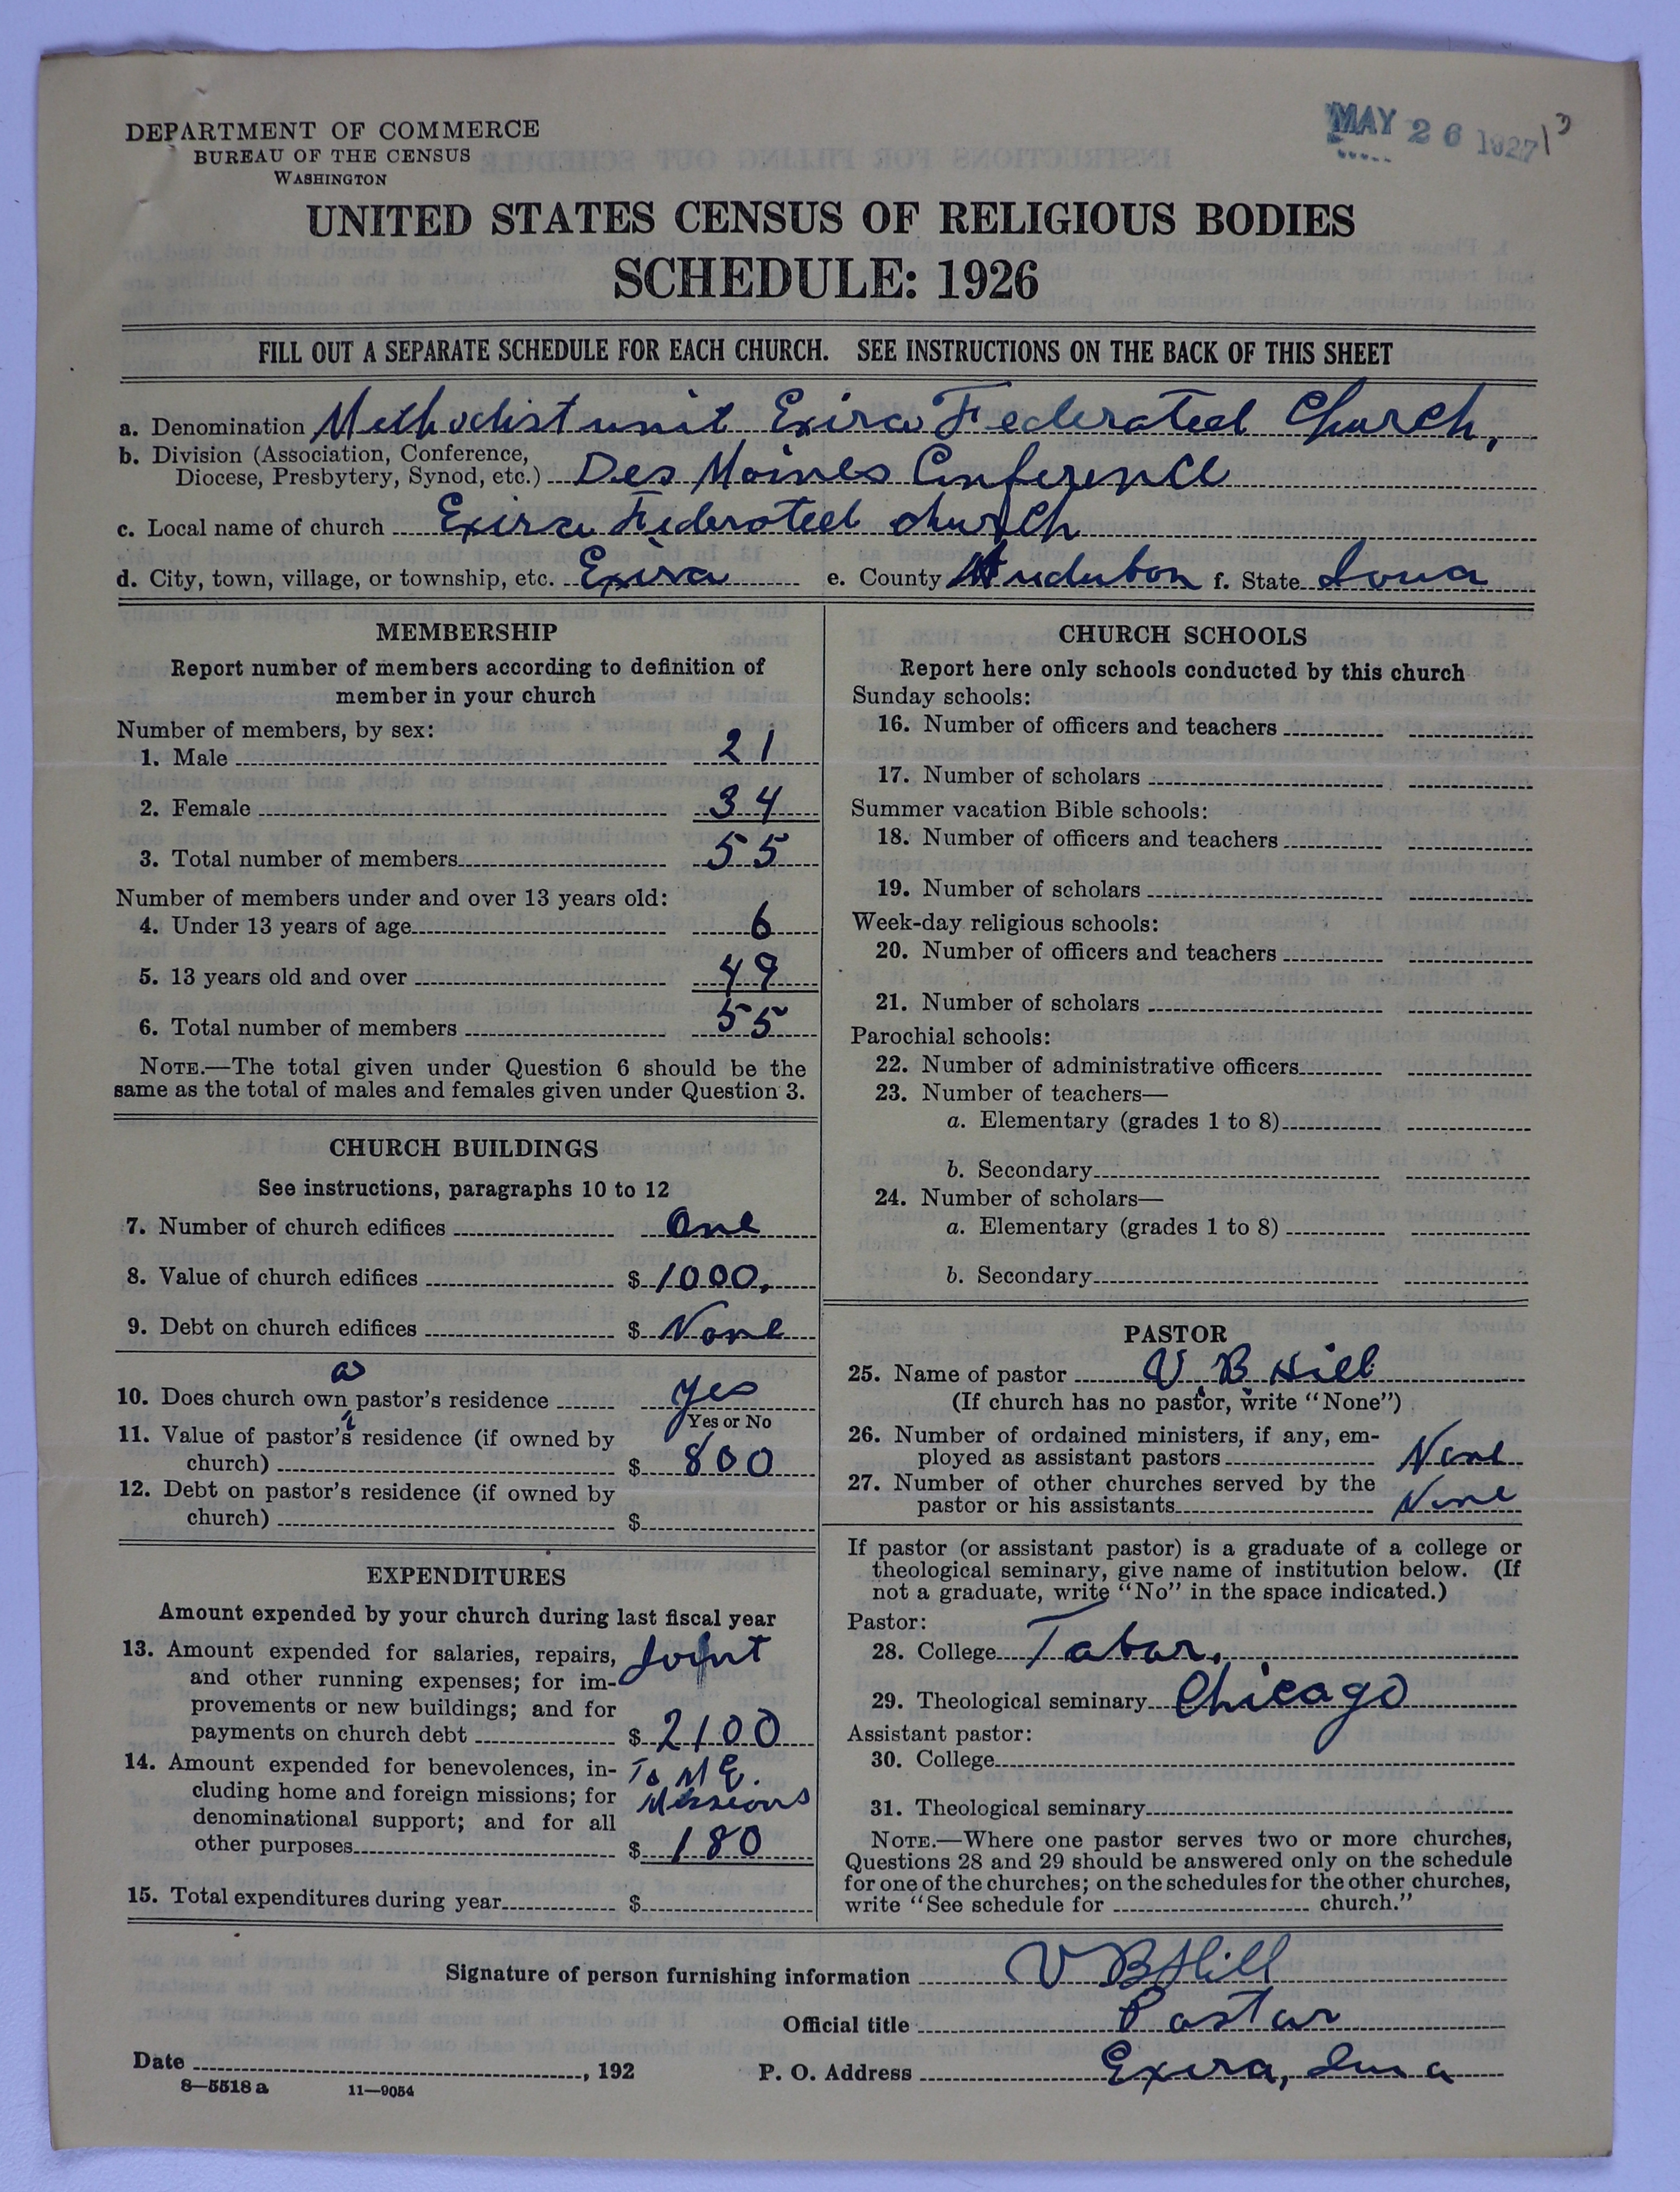 DEPARTMENT OF COMMERCE
BUREAU OF THE CENSUS
WASHINGTON
MAY 26 1927
UNITED STATES CENSUS OF RELIGIOUS BODIES
SCHEDULE: 1926
FILL OUT A SEPARATE SCHEDULE FOR EACH CHURCH. SEE INSTRUCTIONS ON THE BACK OF THIS SHEET
a. Denomination Methodist unit Exira Federated Church,
b. Division (Association, Conference,
Diocese, Presbytery, Synod, etc.) Des Moines Conference
c. Local name of church Exira Federated church
d. City, town, village, or township, etc. Exira e. County Audubon f. State Iowa
MEMBERSHIP
Report number of members according to definition of
member in your church
Number of members, by sex:
1. Male 21
2. Female 34
3. Total number of members 55
Number of members under and over 13 years old:
4. Under 13 years of age 6
5. 13 years old and over 49
6. Total number of members 55
NOTE.—The total given under Question 6 should be the
same as the total of males and females given under Question 3.
CHURCH BUILDINGS
See instructions, paragraphs 10 to 12
7. Number of church edifices One
8. Value of church edifices $ 1000.
9. Debt on church edifices $ None
10. Does church own a pastor's residence Yes
Yes or No
11. Value of pastor's residence (if owned by
church) $ 800
12. Debt on pastor's residence (if owned by
church) $
EXPENDITURES
Amount expended by your church during last fiscal year
13. Amount expended for salaries, repairs, Joint
and other running expenses; for im-
provements or new buildings; and for
payments on church debt $ 2100
14. Amount expended for benevolences, in- To M E.
cluding home and foreign missions; for Missions
denominational support; and for all
other purposes $ 180
15. Total expenditures during year $
CHURCH SCHOOLS
Report here only schools conducted by this church
Sunday schools:
16. Number of officers and teachers
17. Number of scholars
Summer vacation Bible schools:
18. Number of officers and teachers
19. Number of scholars
Week-day religious schools:
20. Number of officers and teachers
21. Number of scholars
Parochial schools:
22. Number of administrative officers
23. Number of teachers—
a. Elementary (grades 1 to 8)
b. Secondary
24. Number of scholars—
a. Elementary (grades 1 to 8)
b. Secondary
PASTOR
25. Name of pastor V. B. Hill
(If church has no pastor, write "None")
26. Number of ordained ministers, if any, em-
ployed as assistant pastors None
27. Number of other churches served by the
pastor or his assistants None
If pastor (or assistant pastor) is a graduate of a college or
theological seminary, give name of institution below. (If
not a graduate, write "No" in the space indicated.)
Pastor:
28. College Tabor.
29. Theological seminary Chicago
Assistant pastor:
30. College
31. Theological seminary
NOTE.—Where one pastor serves two or more churches,
Questions 28 and 29 should be answered only on the schedule
for one of the churches; on the schedules for the other churches,
write "See schedule for church."
Signature of person furnishing information V B Hill
Official title Pastor
Date , 192 P. O. Address Exira, Iowa
8—5518 a 11—9054